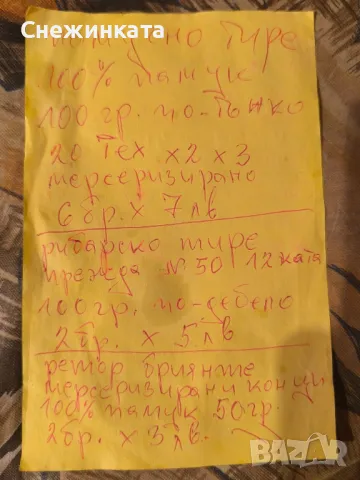 Снежинката
тире
100% памук
100 гр. по-тънко
20 Тех x2 x3
мерсеризирано
6 бр. x 7 лв
рибарско тире
прежда №50 12 ката
100 гр. по-дебело
2 бр. x 5 лв
ретор бриянте
мерсеризирани конци
100% памук 50 гр.
2 бр. x 3 лв.
BAZAR